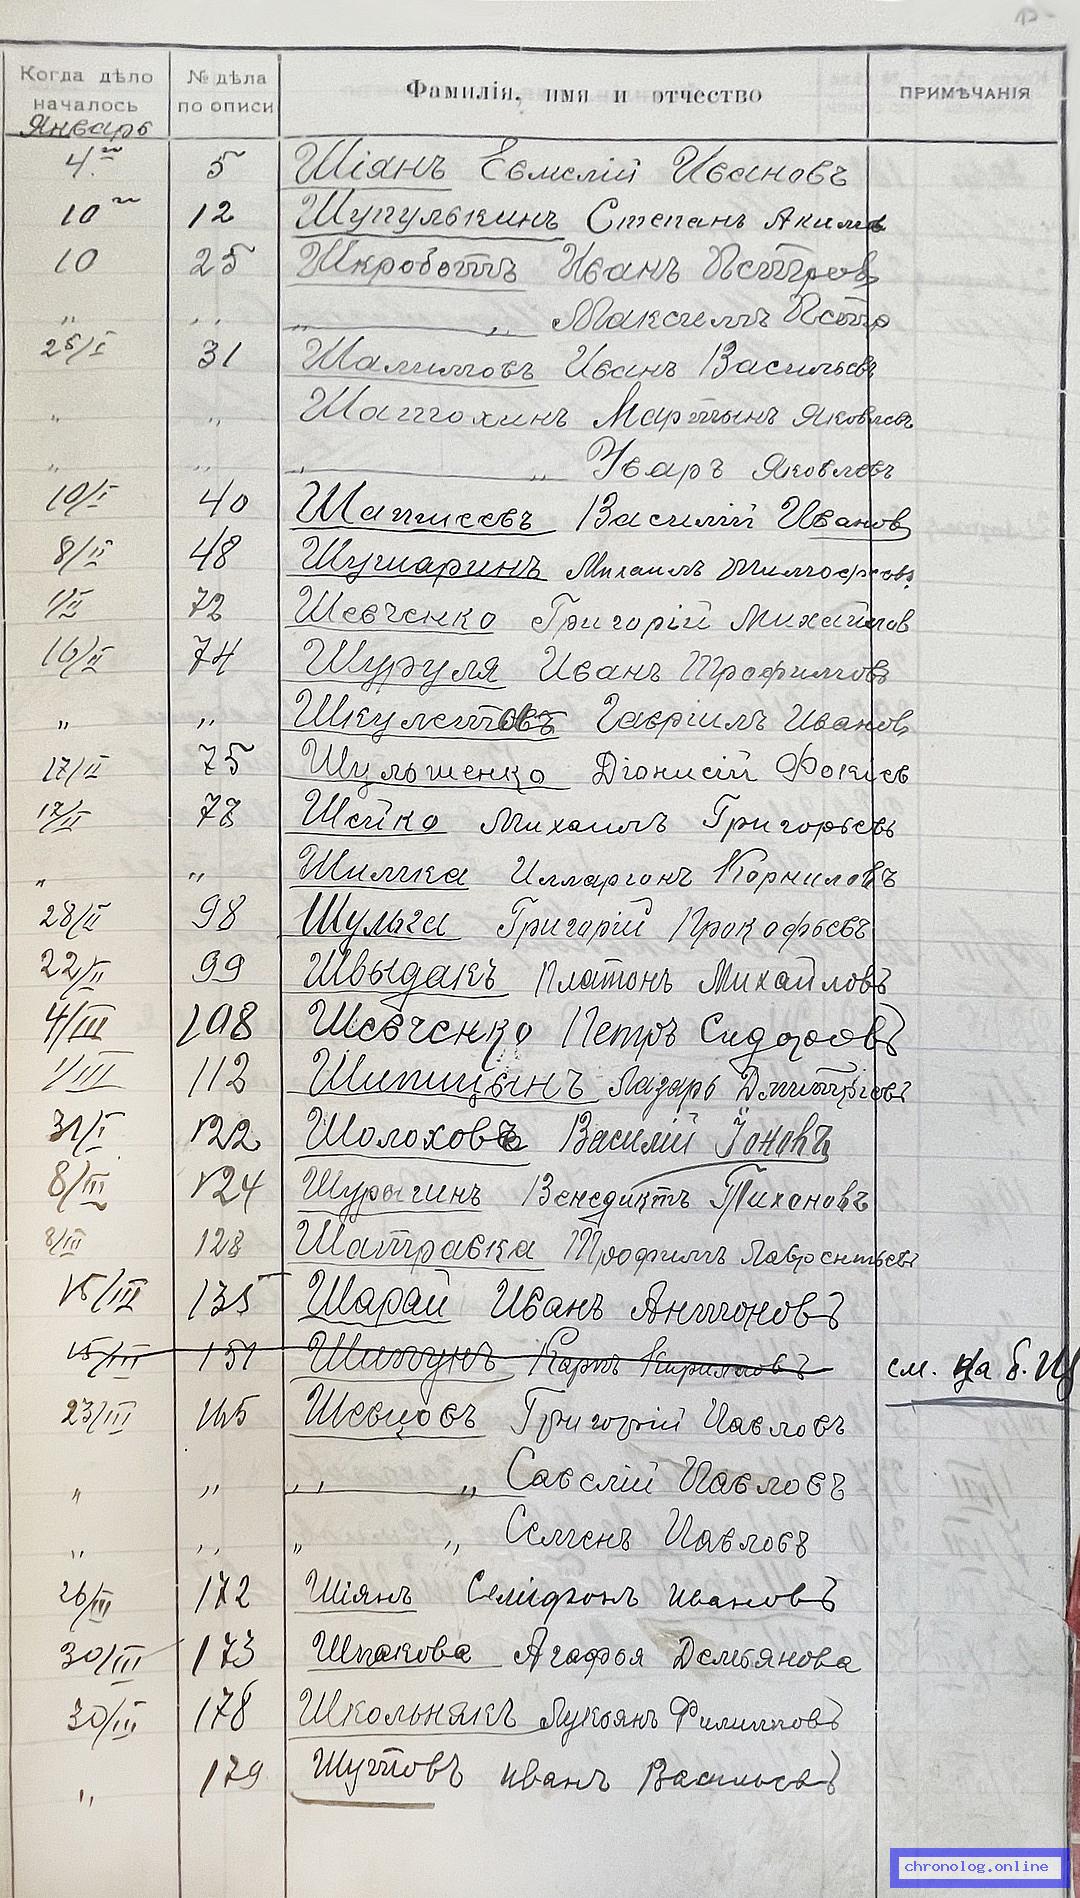 Когда дѣло началось
№ дѣла по описи
Фамилія, имя и отчество
ПРИМѢЧАНІЯ
Январь
4 5 Шіянъ Евмелій Ивановъ
10 12 Шупулькинъ Степанъ Аким
10 25 Шкроботъ Иванъ Петров
„ „ „ „ Максимъ Петр
25/I 31 Шалимовъ Иванъ Васильевъ
„ „ Шатохинъ Мартынъ Яковлевъ
„ „ „ „ Уваръ Яковлевъ
10/I 40 Василій Иванов
8/II 48 Шушаринъ Михаилъ Тимофеевъ
1/II 72 Шевченко Григорій Михайлов
16/II 74 Шуруля Иванъ Трофимовъ
„ „ Гавріилъ Иванов
17/II 75 Шульженко Діонисій Фокіев
17/II 78 Шейко Михаилъ Григорьевъ
„ „ Шилка Илларіонъ Корниловъ
28/II 98 Шульга Григорій Прокофьевъ
22/II 99 Швыдакъ Платонъ Михайловъ
4/III 108 Шевченко Петръ Сидоровъ
1/III 112 Шипицынъ Лазарь Дмитріевъ
31/I 122 Шолохов Василій Іоновъ
8/III 124 Шурыгинъ Венедиктъ Тихоновъ
8/III 128 Шатравка Трофимъ Лаврентьевъ
15/III 135 Шарай Иванъ Антоновъ
15/III 151 Шипунъ Карпъ Кирилловъ см. на б. Щ
23/III 165 Шевцовъ Григорій Павловъ
„ „ „ „ Савелій Павловъ
„ „ „ „ Семенъ Павловъ
26/III 172 Шіянъ Селифонъ Ивановъ
30/III 173 Шпакова Агафья Демьянова
30/III 178 Школьнякъ Лукьянъ Филипповъ
„ 179 Шутовъ Иванъ Васильевъ
chronolog.online